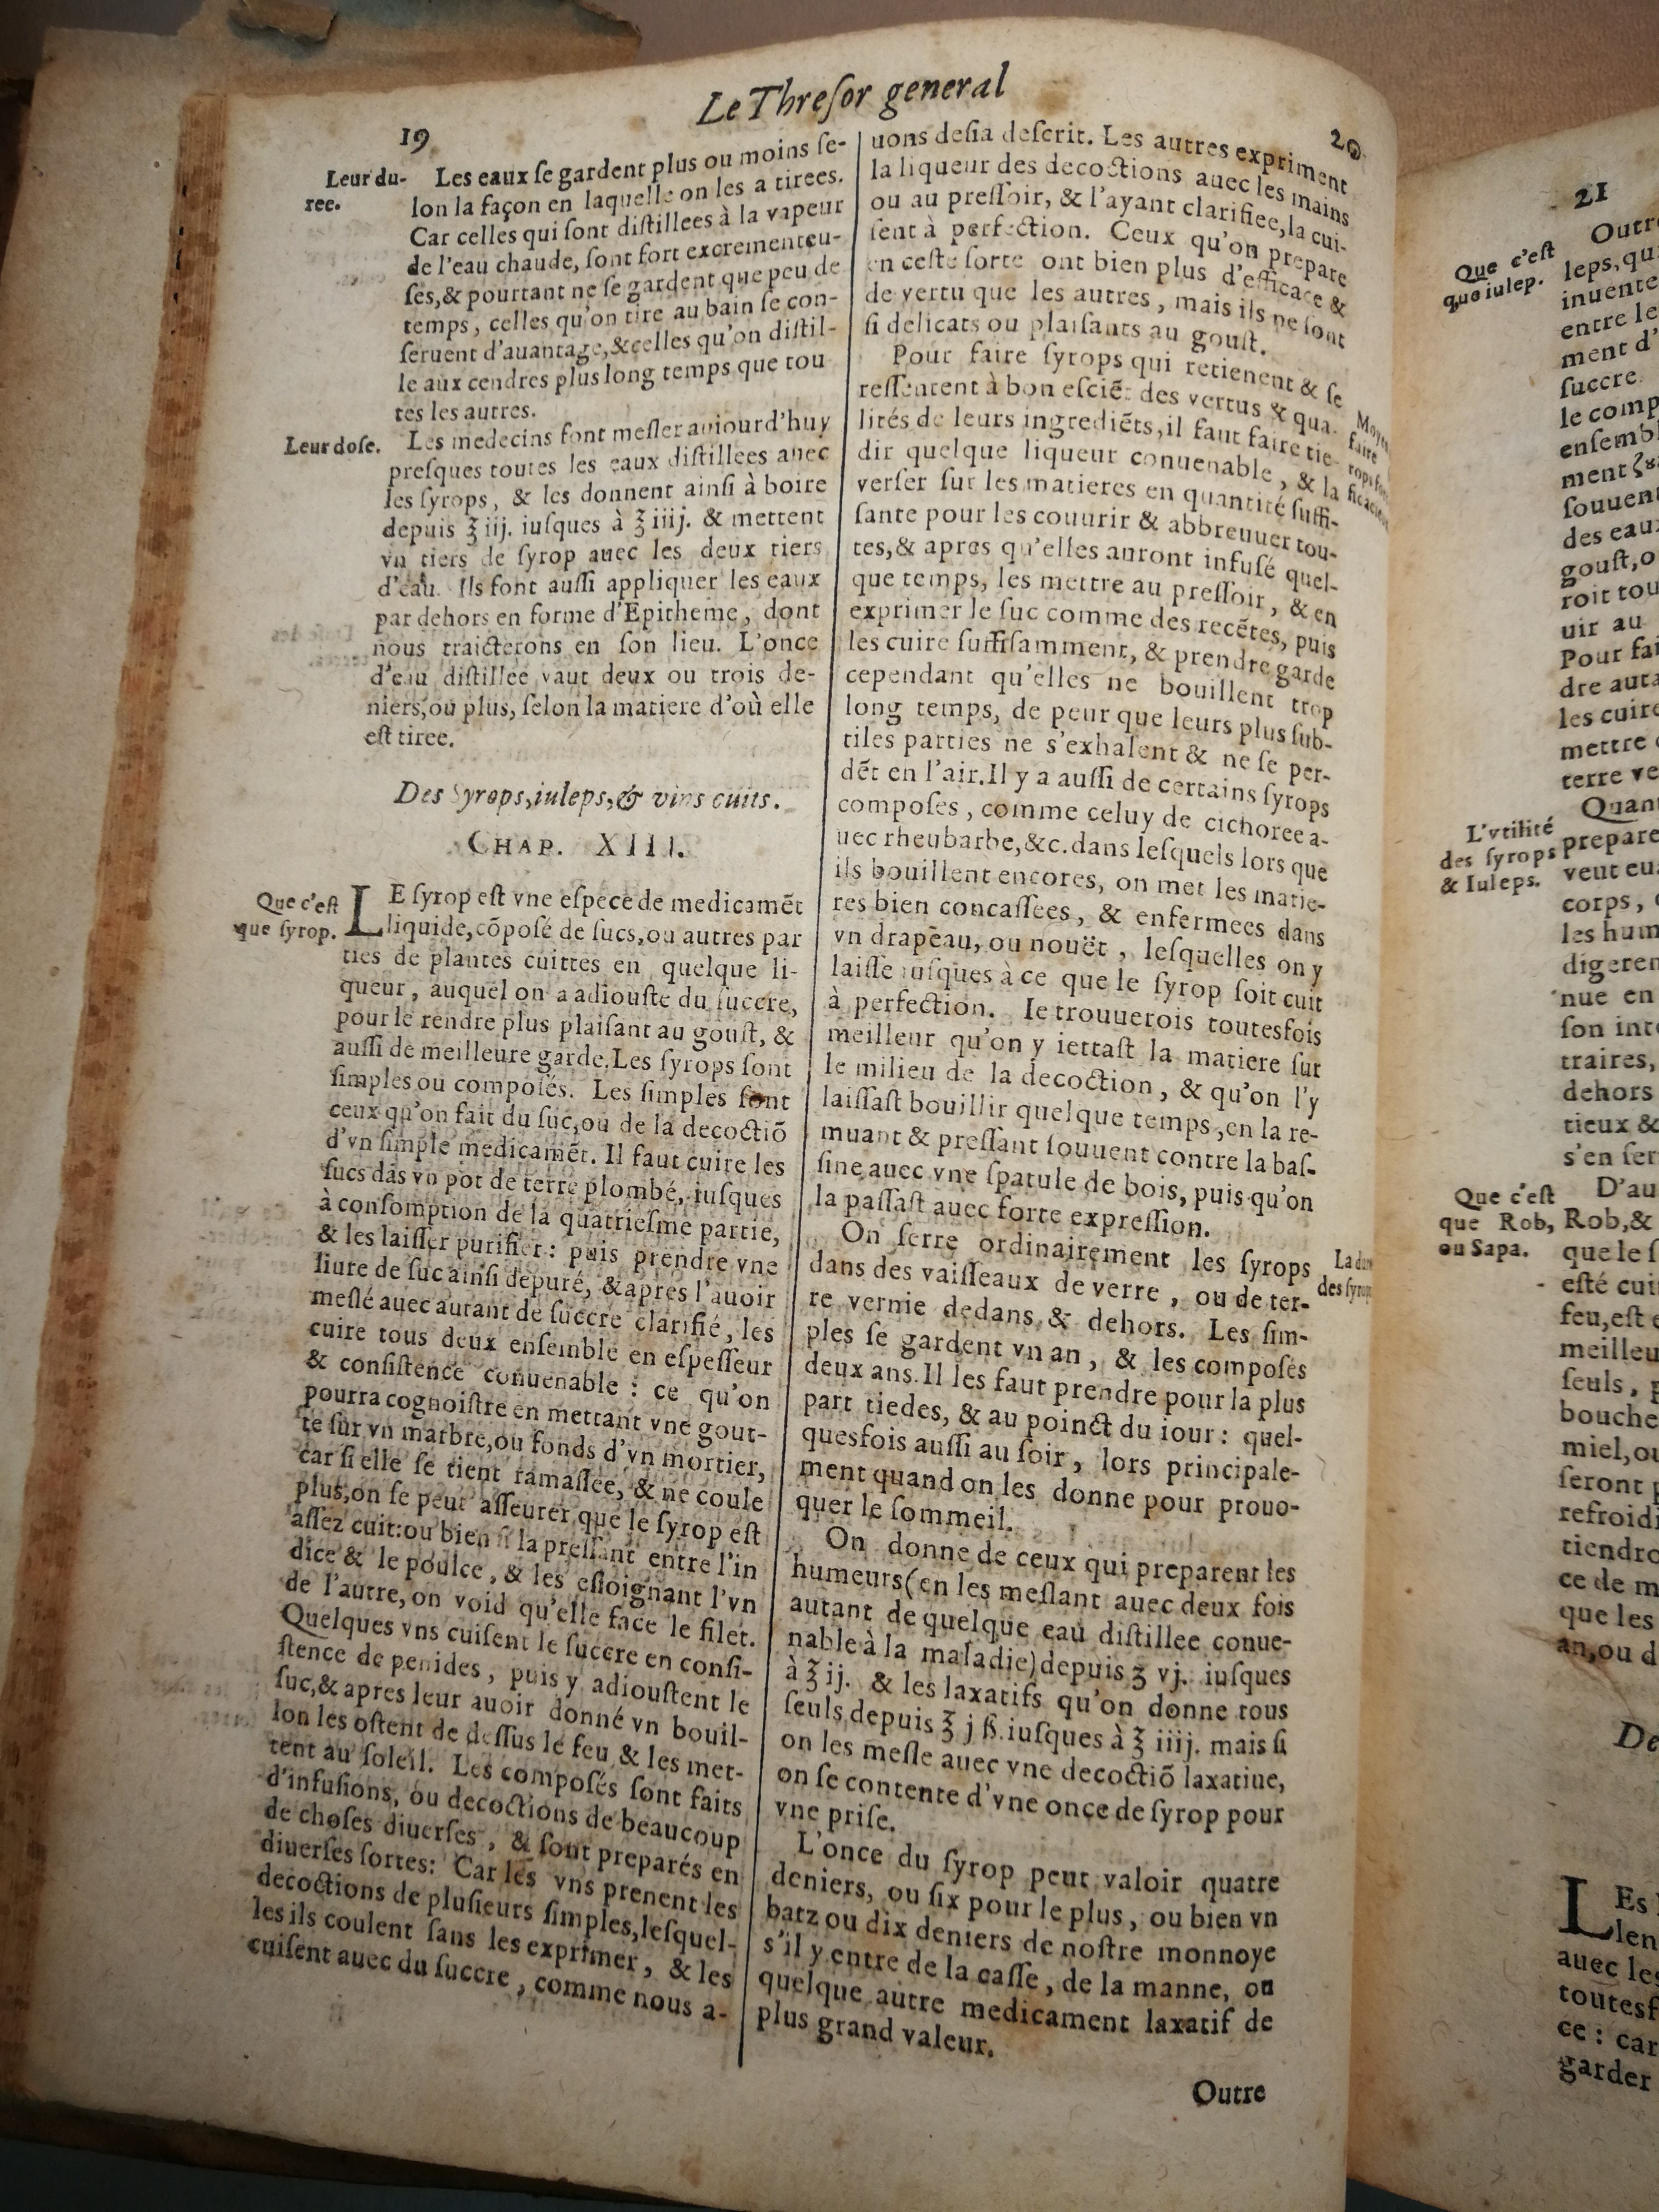 Le Thresor general
19
Leur du-
ree.
Les eaux se gardent plus ou moins se-
lon la façon en laquelle on les a tirees.
Car celles qui sont distillees à la vapeur
de l'eau chaude, sont fort excrementeu-
ses,& pourtant ne se gardent que peu de
temps, celles qu'on tire au bain se con-
seruent d'auantage,&celles qu'on distil-
le aux cendres plus long temps que tou
tes les autres.
Leur dose.
Les medecins font mesler auiourd'huy
presques toutes les eaux distillees auec
les syrops, & les donnent ainsi à boire
depuis ℥ iij. iusques à ℥ iiij. & mettent
vn tiers de syrop auec les deux tiers
d'eau. Ils font aussi appliquer les eaux
par dehors en forme d'Epitheme, dont
nous traicterons en son lieu. L'once
d'eau distillee vaut deux ou trois de-
niers,ou plus, selon la matiere d'où elle
est tiree.
Des Syrops,iuleps,& vins cuits.
CHAP. XIII.
Que c'est
que syrop.
LE syrop est vne espece de medicamēt
liquide,cōposé de sucs,ou autres par
ties de plantes cuittes en quelque li-
queur, auquel on a adiouste du succre,
pour le rendre plus plaisant au goust, &
aussi de meilleure garde.Les syrops sont
simples ou composés. Les simples sont
ceux qu'on fait du suc,ou de la decoctiō
d'vn simple medicamēt. Il faut cuire les
sucs dās vn pot de terre plombé, iusques
à consomption de la quatriesme partie,
& les laisser purifier: puis prendre vne
liure de suc ainsi depuré, &apres l'auoir
meslé auec autant de succre clarifié, les
cuire tous deux ensemble en espesseur
& consistence conuenable : ce qu'on
pourra cognoistre en mettant vne gout-
te sur vn marbre,ou fonds d'vn mortier,
car si elle se tient ramassee, & ne coule
plus,on se peut asseurer que le syrop est
assez cuit:ou bien si la pressant entre l'in
dice & le poulce, & les esloignant l'vn
de l'autre,on void qu'elle face le filet.
Quelques vns cuisent le succre en consi-
stence de penides, puis y adioustent le
suc,& apres leur auoir donné vn bouil-
lon les ostent de dessus le feu & les met-
tent au soleil. Les composés sont faits
d'infusions, ou decoctions de beaucoup
de choses diuerses, & sont preparés en
diuerses sortes: Car les vns prenent les
decoctions de plusieurs simples,lesquel-
les ils coulent sans les exprimer, & les
cuisent auec du succre, comme nous a-
20
uons desia descrit. Les autres expriment
la liqueur des decoctions auec les mains
ou au pressoir, & l'ayant clarifiee,la cui-
sent à perfection. Ceux qu'on prepare
en ceste sorte ont bien plus d'efficace &
de vertu que les autres, mais ils ne sont
si delicats ou plaisants au goust.
Pour faire syrops qui retienent & se
ressentent à bon esciēt des vertus & qua-
lités de leurs ingrediēts,il faut faire tie-
dir quelque liqueur conuenable, & la
verser sur les matieres en quantité suffi-
sante pour les couurir & abbreuuer tou-
tes,& apres qu'elles auront infusé quel-
que temps, les mettre au pressoir, & en
exprimer le suc comme des recētes, puis
les cuire suffisamment, & prendre garde
cependant qu'elles ne bouillent trop
long temps, de peur que leurs plus sub-
tiles parties ne s'exhalent & ne se per-
dēt en l'air.Il y a aussi de certains syrops
composes, comme celuy de cichoree a-
uec rheubarbe,&c.dans lesquels lors que
ils bouillent encores, on met les matie-
res bien concassees, & enfermees dans
vn drapeau, ou nouët, lesquelles on y
laisse iusques à ce que le syrop soit cuit
à perfection. Ie trouuerois toutesfois
meilleur qu'on y iettast la matiere sur
le milieu de la decoction, & qu'on l'y
laissast bouillir quelque temps,en la re-
muant & pressant souuent contre la bas-
sine auec vne spatule de bois, puis qu'on
la passast auec forte expression.
On serre ordinairement les syrops
dans des vaisseaux de verre, ou de ter-
re vernie dedans & dehors. Les sim-
ples se gardent vn an, & les composés
deux ans.Il les faut prendre pour la plus
part tiedes, & au poinct du iour: quel-
quesfois aussi au soir, lors principale-
ment quand on les donne pour prouo-
quer le sommeil.
On donne de ceux qui preparent les
humeurs(en les meslant auec deux fois
autant de quelque eau distillee conue-
nable à la maladie)depuis ʒ vj. iusques
à ℥ ij. & les laxatifs qu'on donne tous
seuls depuis ℥ j ß. iusques à ℥ iiij. mais si
on les mesle auec vne decoctiō laxatiue,
on se contente d'vne once de syrop pour
vne prise.
L'once du syrop peut valoir quatre
deniers, ou six pour le plus, ou bien vn
batz ou dix deniers de nostre monnoye
s'il y entre de la casse, de la manne, ou
quelque autre medicament laxatif de
plus grand valeur.
Moyen
faire
La
des
Outre
21
Que c'est
que iulep.
leps,qui
entre le
ment d'
succre
des eaux
roit tou
uir au
Pour fai
les cuire
mettre
terre
L'vtilité
des syrops
& Iuleps.
corps,
nue en
traires,
dehors
tieux &
Que c'est
que Rob,
ou Sapa.
D'au
Rob,&
que le
feu,est
seuls,
bouche
miel,ou
seront
ce de
que les
an,ou
De
LEs
auec les
ce : car
garder